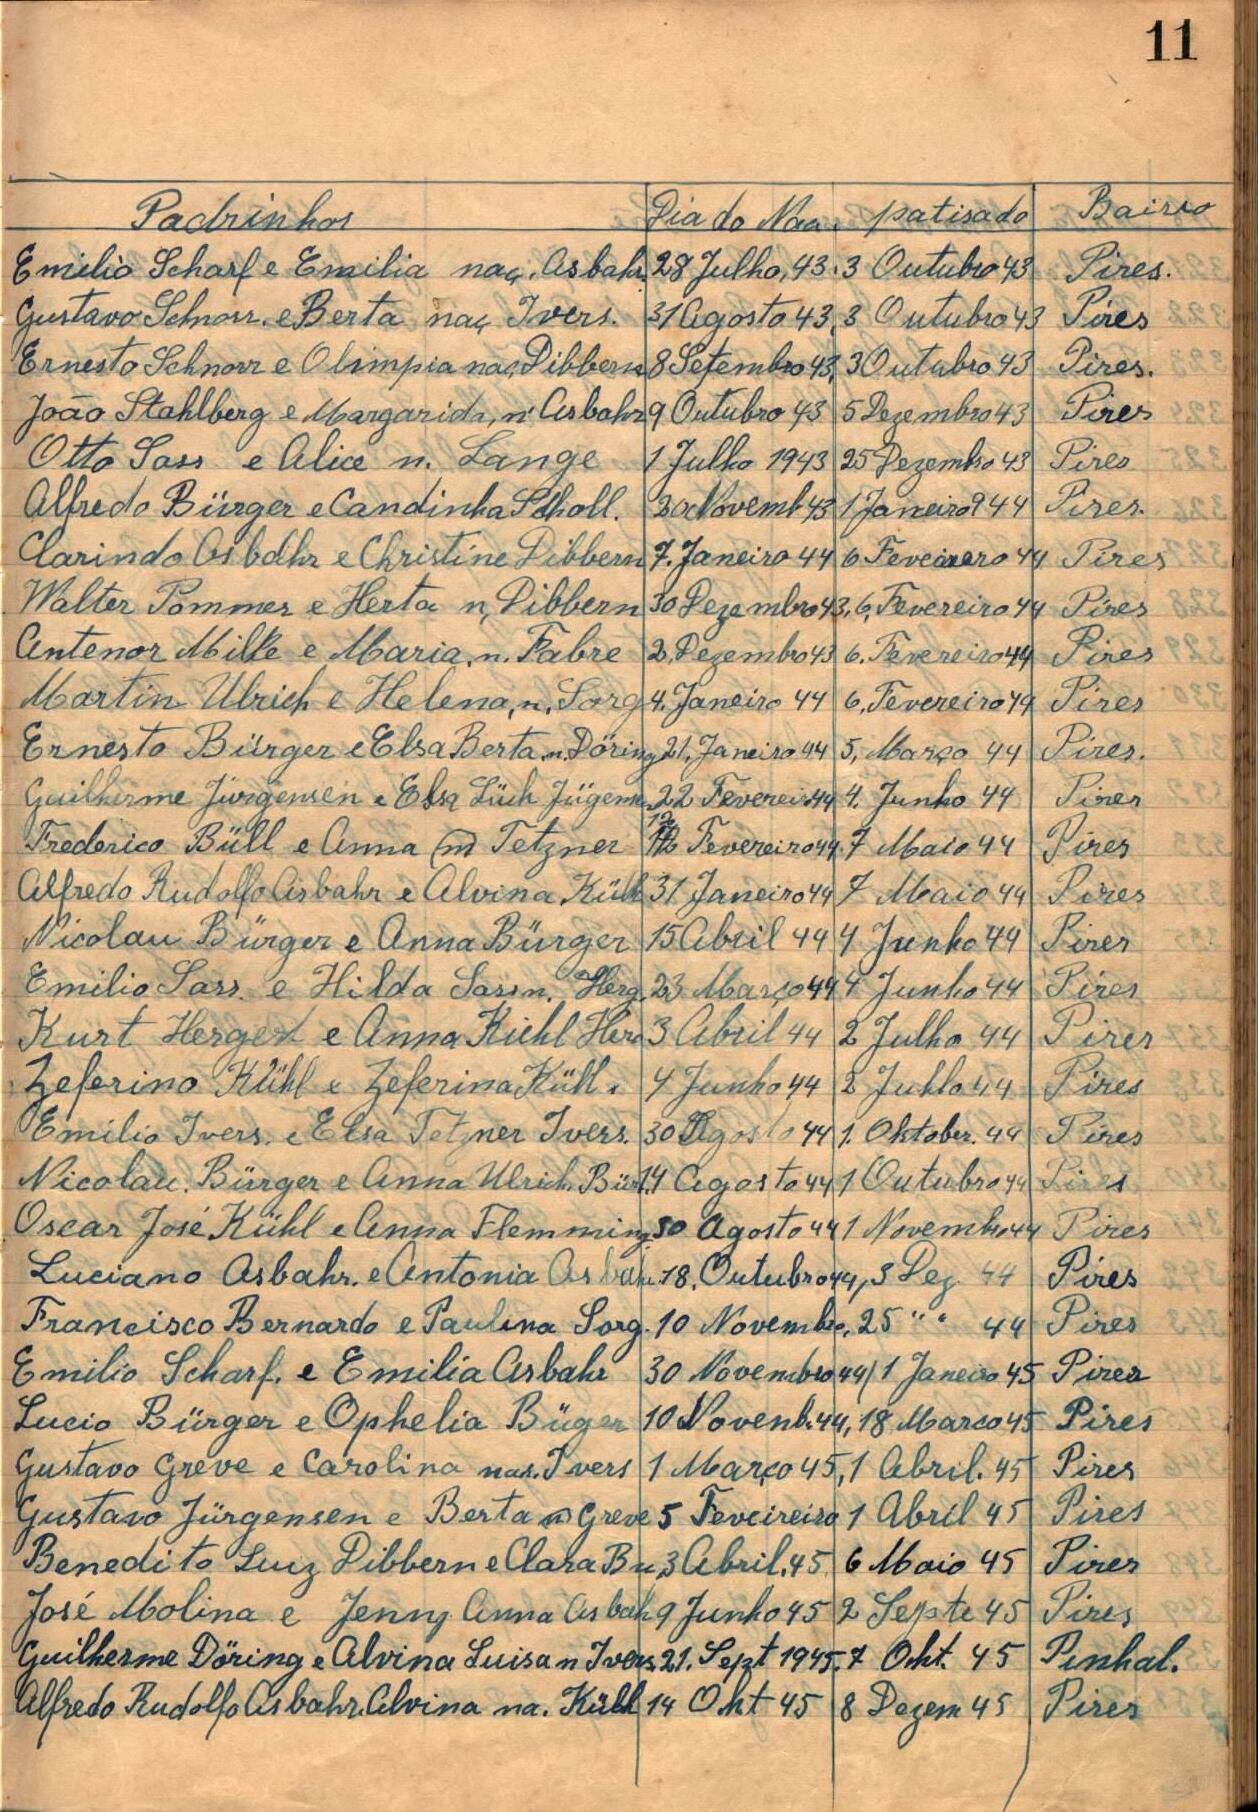 11
Padrinhos Dia do Naa. patisado Bairro
Emilio Scharf e Emilia naç. Asbahr 28 Julho, 43. 3 Outubro 43 Pires.
Gustavo Schnorr. e Berta naç Ivers. 31 Agosto 43, 3 Outubro 43 Pires
Ernesto Schnorr e Olimpia naç Dibbern 8 Setembro 43, 3 Outubro 43 Pires.
João Stahlberg e Margarida, n' Asbahr 9 Outubro 43 5 Dezembro 43 Pires
Otto Sass e Alice n. Lange 1 Julho 1943 25 Dezembro 43 Pires
Alfredo Bürger e Candinha Scholl. Novemb 43 1 Janeiro 944 Pires.
Clarindo Asbahr e Christine Dibbern 7. Janeiro 44 6 44 Pires
Walter Pommer e Herta n, Dibbern 30 Dezembro 43, 6, Fevereiro 44 Pires
Antenor Milke e Maria, n. Fabre 2, Dezembro 43 6. Fevereiro 44 Pires
Martin Ulrich e Helena, n, Sorg 4. Janeiro 44 6, Fevereiro 44 Pires
Ernesto Bürger e Elsa Berta n. Döring 21, Janeiro 44 5, Março 44 Pires.
Guilherme Jürgensen e Elsa Lüch 22 Fevereiro 44 4. Junho 44 Pires
Frederico Büll e Anna (n) Tetzner Fevereiro 44 7 Maio 44 Pires
Alfredo Rudolfo Asbahr e Alvina Kühl 31 Janeiro 44 7 Maio 44 Pires
Nicolau Bürger e Anna Bürger 15 Abril 44 4 Junho 44 Pires
Emilio Sass. e Hilda Sass n. Herg. 23 Março 44 4 Junho 44 Pires
Kurt Hergert e Anna Kiehl Herg 3 Abril 44 2 Julho 44 Pires
Zeferino Kühl e Zeferina Kühl. 4 Junho 44 2 Juhlo 44 Pires
Emilio Ivers. e Elsa Tetzner Ivers. 30 Agosto 44 1. Oktober. 44 Pires
Nicolau. Bürger e Anna Ulrich. Bür 14 Agosto 44 1 Outubro 44 Pires
Oscar José Kühl e Anna Flemming 30 Agosto 44 1 Novembro 44 Pires
Luciano Asbahr. e Antonia Asbahr. 18, Outubro 44, 3 Dez. 44 Pires
Francisco Bernardo e Paulina Sorg. 10 Novembro, 25 " " 44 Pires
Emilio Scharf. e Emilia Asbahr 30 Novembro 44/ 1 Janeiro 45 Pires
Lucio Bürger e Ophelia Büger 10 Novenb. 44, 18 Marco 45 Pires
Gustavo Greve e Carolina nas. Ivers 1 Março 45, 1 Abril. 45 Pires
Gustavo Jürgensen e Berta (n) Greve 5 Fevcireiro 1 Abril 45 Pires
Benedito Luiz Dibbern e Clara Bu 3 Abril, 45 6 Maio 45 Pires
José Molina e Jenny Anna Asbah 9 Junho 45 2 Septe 45 Pires
Guilherme Döring e Alvina Luisa n Ivers. 21. Sept 1945. 7 Okt. 45 Pinhal.
Alfredo Rudolfo Asbahr. Alvina na. Kühl 14 Okt 45 8 Dezem 45 Pires